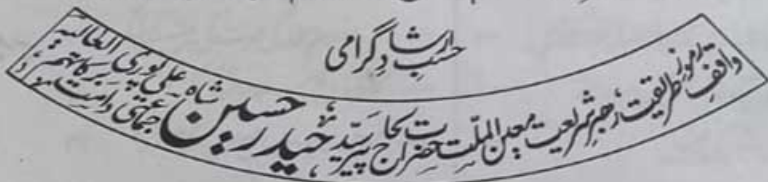 حسبِ ارشادِ گرامی
واقفِ رموزِ طریقت، رہبرِ شریعت، معین الملّت حضرت الحاج پیر سیّد حیدر حسین شاہ علی پوری جماعتی دامت برکاتہم العالیہ